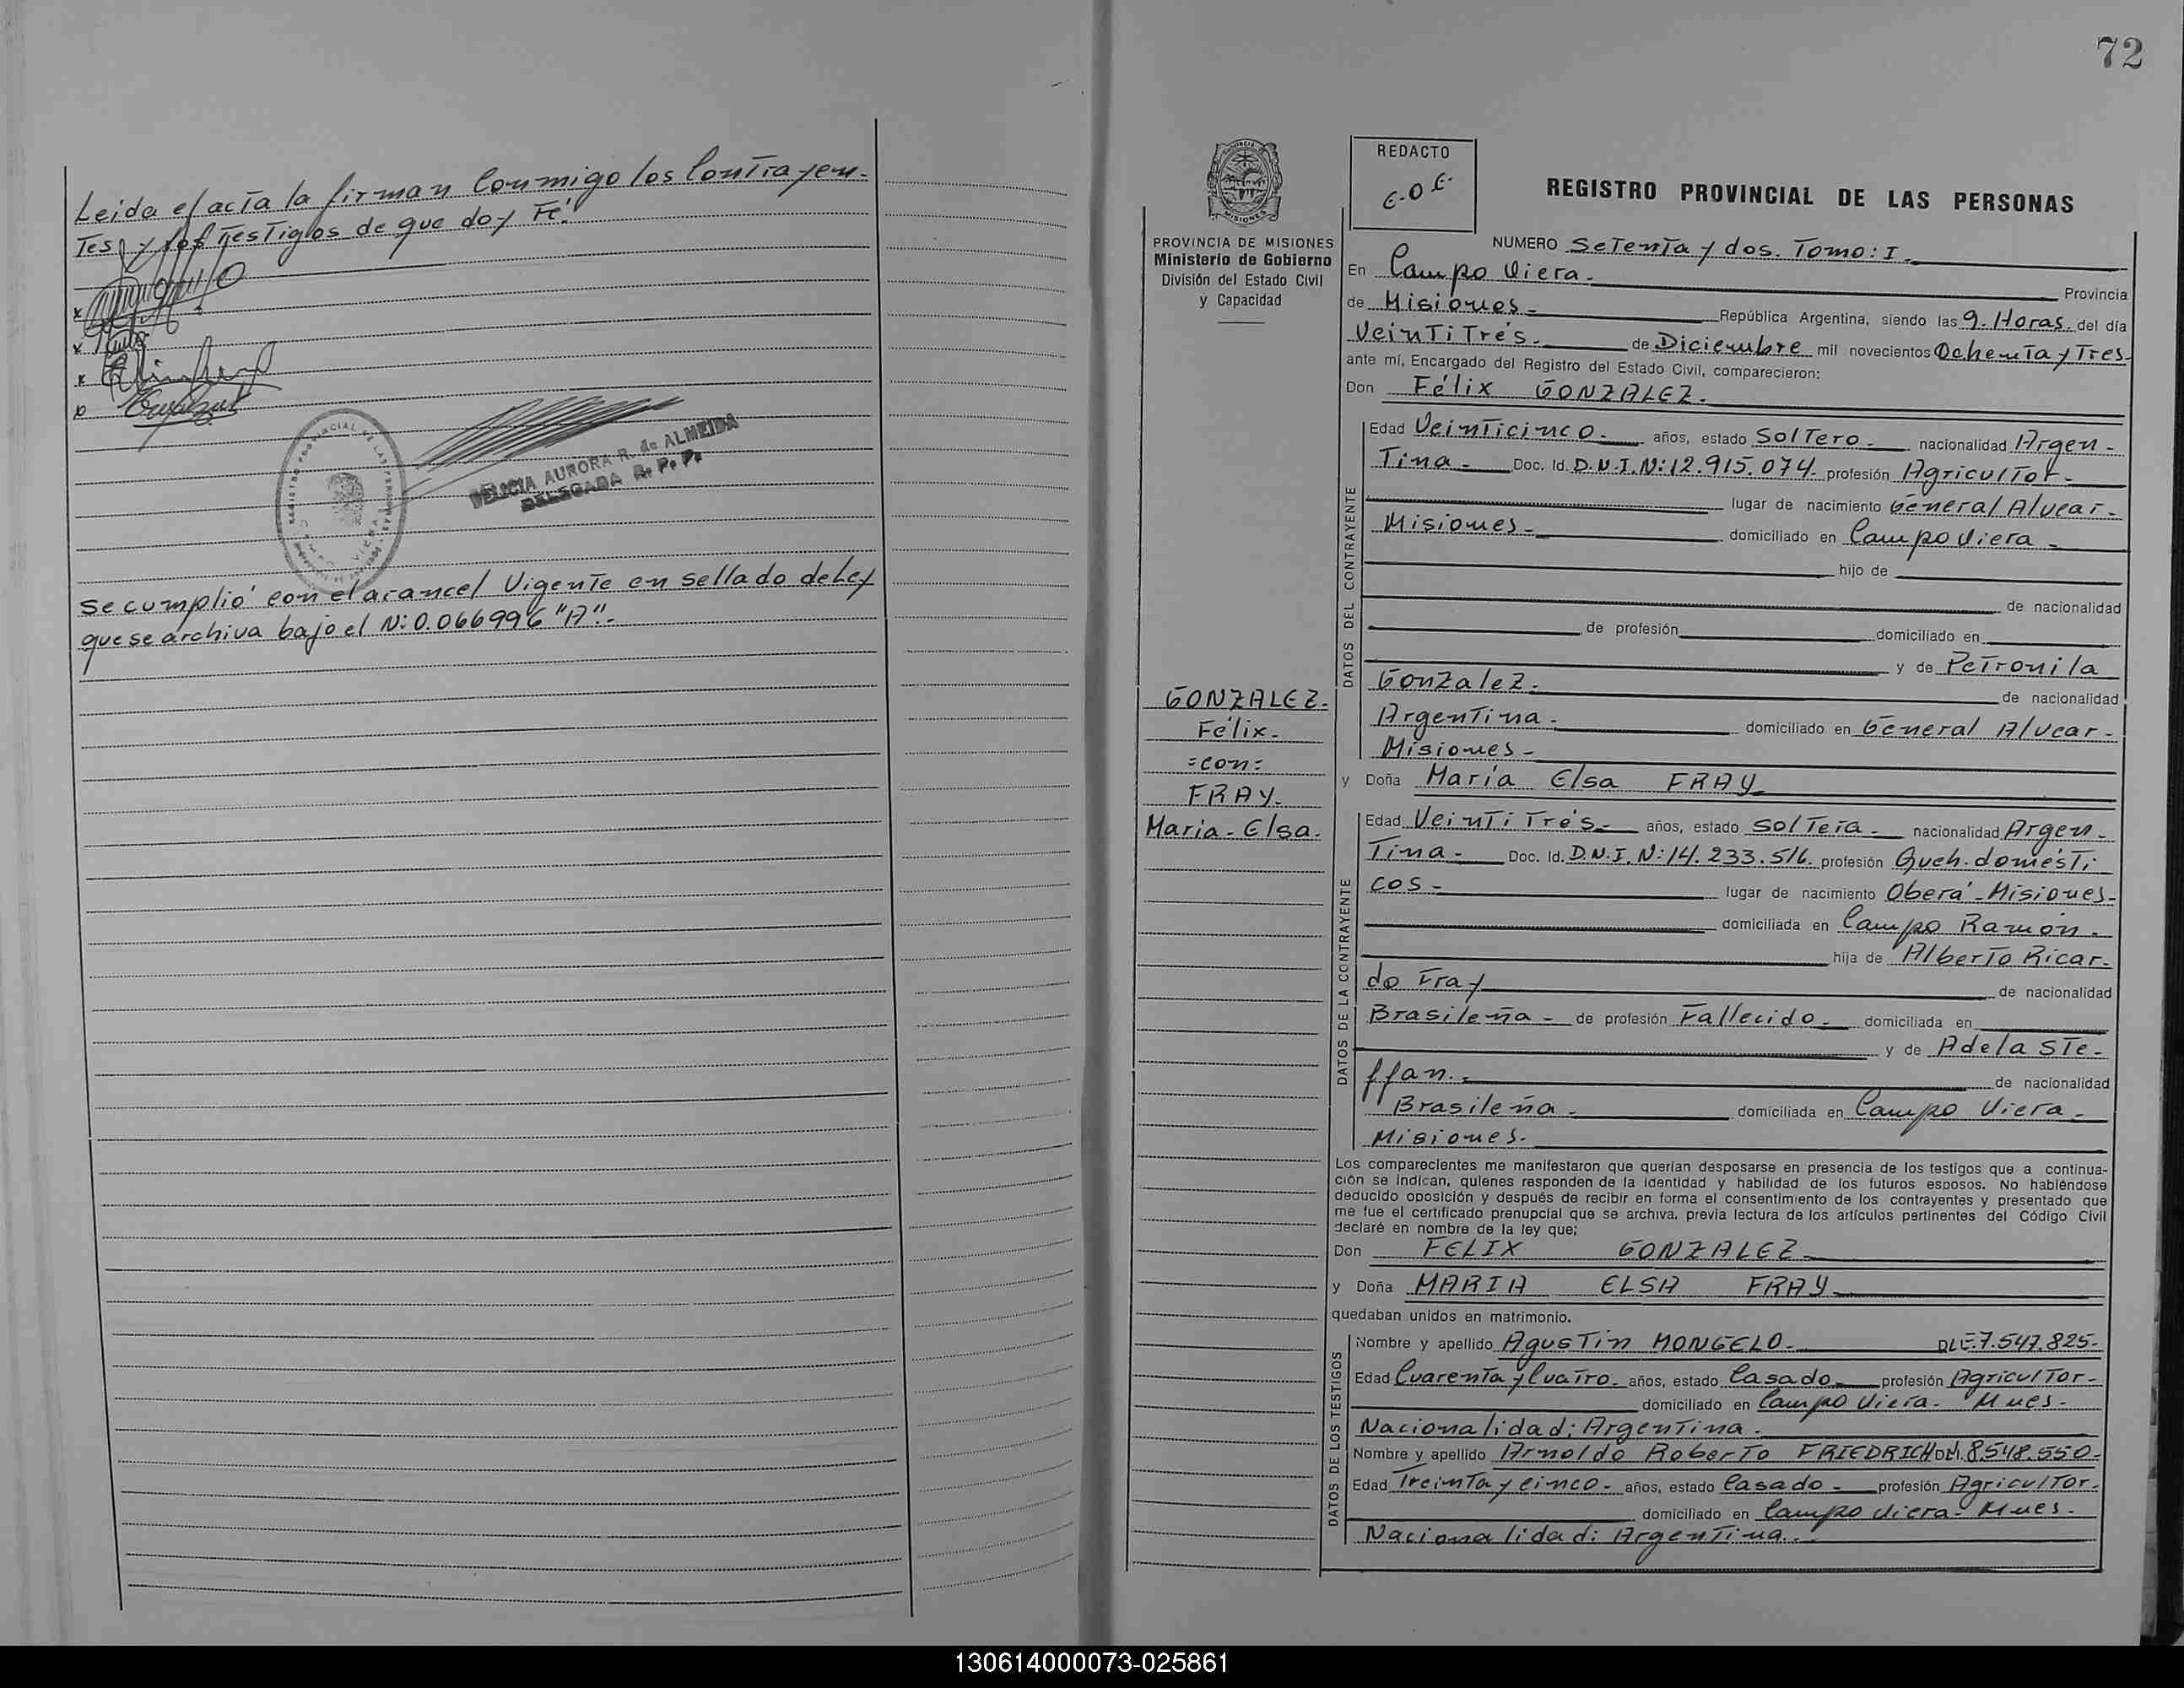 Leida el acta la firman Conmigo los Contrayen-
Tes y los Testigos de que doy Fé.
DELICIA AURORA R. de ALMEIDA
DELEGADA R. P. P.
Se cumplió con el arancel Vigente en sellado de Ley
que se archiva bajo el N: 0.066996 "A".-
72
REDACTO
E.O.E.
REGISTRO PROVINCIAL DE LAS PERSONAS
PROVINCIA DE MISIONES
Ministerio de Gobierno
División del Estado Civil
y Capacidad
GONZALEZ.
Félix.
=con=
FRAY.
Maria-Elsa.
NUMERO Setenta y dos. Tomo: I.
En Campo Viera. Provincia
de Misiones- República Argentina, siendo las 9. Horas. del día
Veintitrés- de Diciembre mil novecientos Ochenta y Tres
ante mí, Encargado del Registro del Estado Civil, comparecieron:
Don Félix GONZALEZ.
DATOS DEL CONTRAYENTE
Edad Veinticinco- años, estado Soltero- nacionalidad Argen-
Tina- Doc. Id. D.N.I.N:12.915.074. profesión Agricultor-
lugar de nacimiento General Alvear-
Misiones- domiciliado en Campo Viera-
hijo de
de nacionalidad
de profesión domiciliado en
y de Petronila
Gonzalez- de nacionalidad
Argentina- domiciliado en General Alvear-
Misiones-
y Doña Maria Elsa FRAY
DATOS DE LA CONTRAYENTE
Edad Veintitrés- años, estado Soltera- nacionalidad Argen-
Tina- Doc. Id. D.N.I. N:14.233.516. profesión Queh. domésti
cos- lugar de nacimiento Oberá-Misiones-
domiciliada en Campo Ramón.
hija de Alberto Ricar-
do Fray de nacionalidad
Brasileña- de profesión Fallecido- domiciliada en
y de Adela Ste-
ffan.- de nacionalidad
Brasileña- domiciliada en Campo Viera-
Misiones.
Los comparecientes me manifestaron que querían desposarse en presencia de los testigos que a continua-
ción se indican, quienes responden de la identidad y habilidad de los futuros esposos. No habiéndose
deducido oposición y después de recibir en forma el consentimiento de los contrayentes y presentado que
me fue el certificado prenupcial que se archiva, previa lectura de los artículos pertinentes del Código Civil
declaré en nombre de la ley que:
Don FELIX GONZALEZ
y Doña MARIA ELSA FRAY
quedaban unidos en matrimonio.
DATOS DE LOS TESTIGOS
Nombre y apellido Agustín MONGELO- DLE.7.547.825-
Edad Cuarenta y Cuatro- años, estado Casado- profesión Agricultor-
domiciliado en Campo Viera- Mnes-
Nacionalidad: Argentina.
Nombre y apellido Arnoldo Roberto FRIEDRICH DNI.8.548.550-
Edad Treinta y cinco- años, estado Casado- profesión Agricultor-
domiciliado en Campo Viera- Mnes-
Nacionalidad: Argentina.-
130614000073-025861